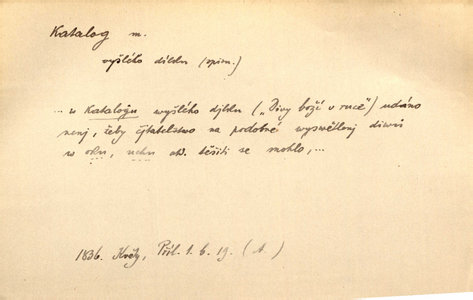 Katalog m.
vyšlého dílku (opium.)
... w Katalogu wyšlého djlku („Divy boží v ruce") udáno
nenj, žeby čtatelstwo na podobné wyswětlenj diwů
w oku, uchu atd. těšiti se mohlo, ...
1836. Květy, Příl. 1. 6. 19. (A)